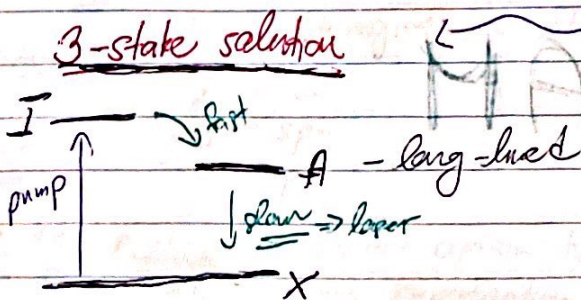 3-state solution
I
fast
pump
A - long-lived
slow => laser
X